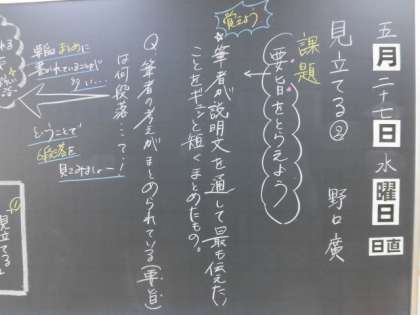 五月二十七日水曜日
日直
見立てる② 野口廣
課題
要旨をとらえよう
覚えよう
筆者が説明文を通して最も伝えたい
ことをギュッと短くまとめたもの。
Q 筆者の考えがまとめられている(要旨)
は何段落…で!
単純まとめに
書かれていることが
多い…
ということで
6段落を
見てみましょー!
見立てる